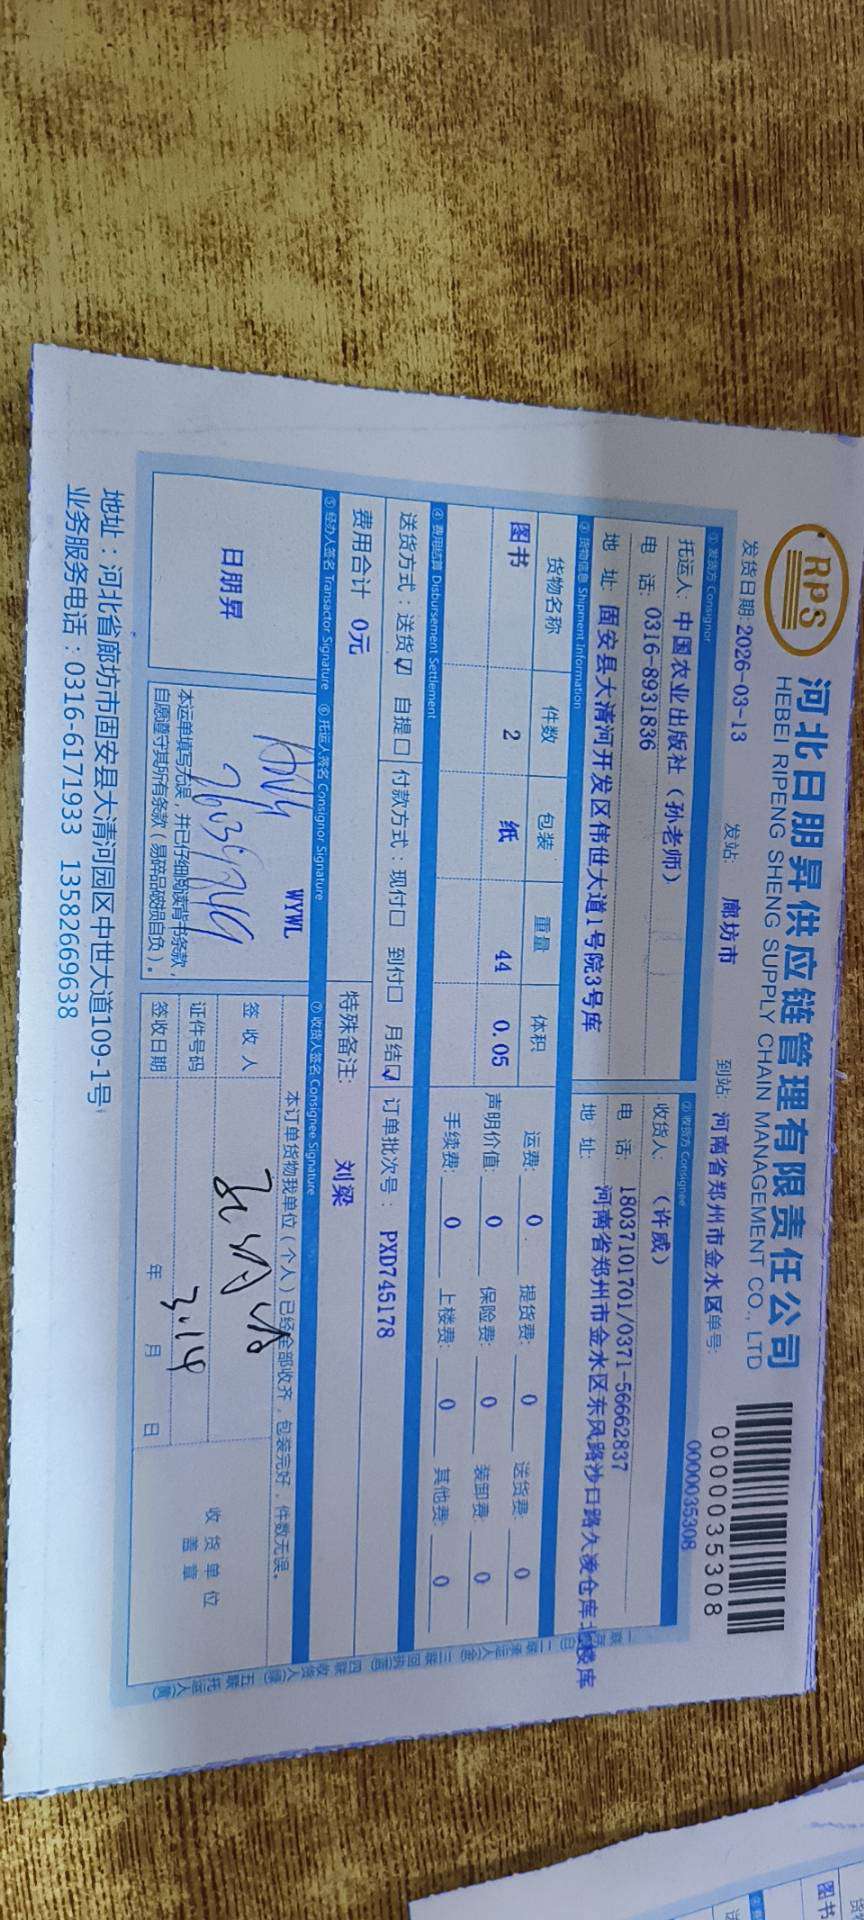 RPS
河北日朋昇供应链管理有限责任公司
HEBEI RIPENG SHENG SUPPLY CHAIN MANAGEMENT CO., LTD
0000035308
发货日期:2026-03-13 发站: 廊坊市 到站: 河南省郑州市金水区 单号: 0000035308
① 发货方 Consignor ② 收货方 Consignee
托运人: 中国农业出版社（孙老师） 收货人: （许威）
电 话: 0316-8931836 电 话: 18037101701/0371-56662837
地 址: 固安县大清河开发区伟世大道1号院3号库 地 址: 河南省郑州市金水区东风路沙口路久凌仓库北楼库
③ 货物信息 Shipment Information
货物名称 件数 包装 重量 体积 运费: 0 提货费: 0 送货费: 0
图书 2 纸 44 0.05 声明价值: 0 保险费: 0 装卸费: 0
手续费: 0 上楼费: 0 其他费: 0
④ 费用结算 Disbursement Settlement
送货方式：送货☑ 自提□ 付款方式：现付□ 到付□ 月结☑ 订单批次号： PXD745178
费用合计 0元 特殊备注: 刘梁
⑤ 经办人签名 Transactor Signature ⑥ 托运人签名 Consignor Signature ⑦ 收货人签名 Consignee Signature
日朋昇
WYWL
本运单填写无误，并已仔细阅读背书条款，
自愿遵守其所有条款（易碎品破损自负）。
本订单货物我单位（个人）已经全部收齐，包装完好，件数无误。
签 收 人
证件号码
签收日期 年 月 日
3.14
收货单位
盖章
二联承运人(金) 三联回执(蓝) 四联收货人(绿) 五联托运人(黄)
地址：河北省廊坊市固安县大清河园区中世大道109-1号
业务服务电话：0316-6171933 13582669638
图书